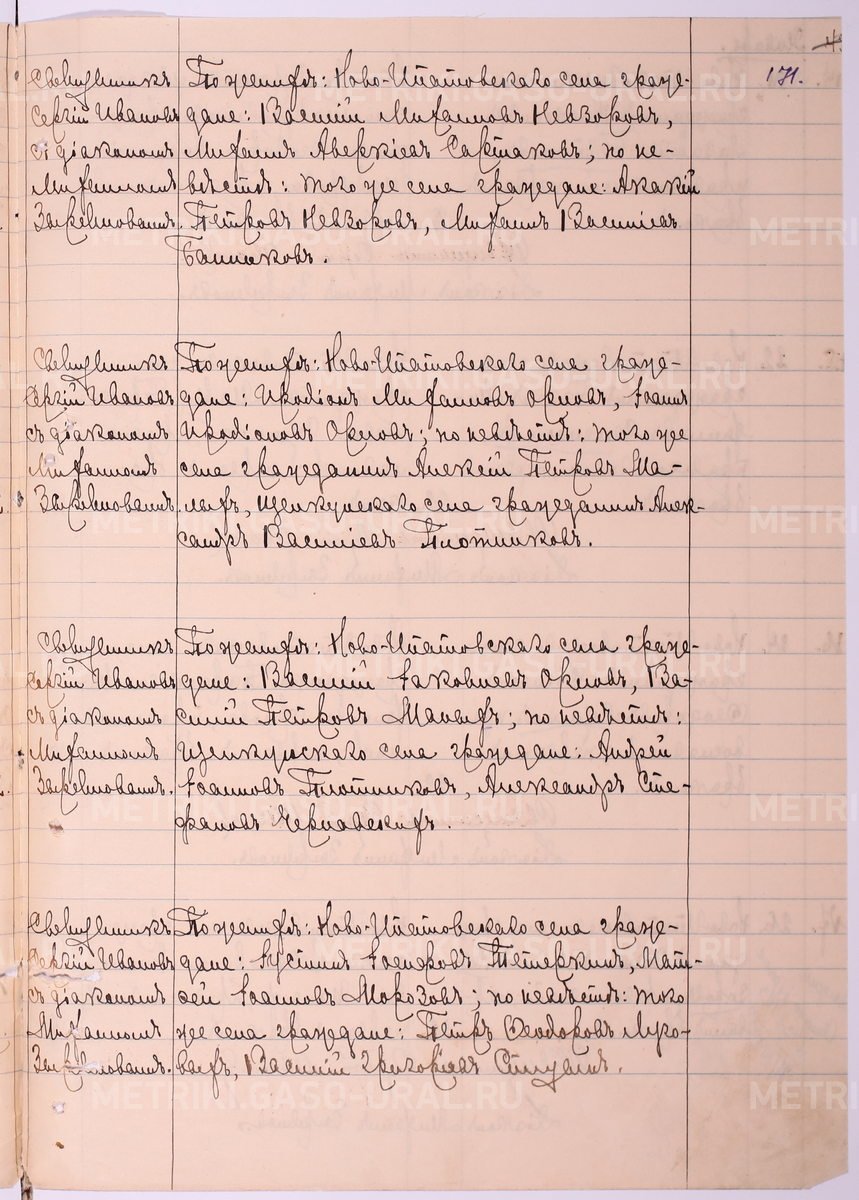 171.
Священникъ
Сергій Ивановъ
съ діакономъ
Михаиломъ
По женихѣ: Ново-Ипатовскаго села граж-
дане: Василій Михаиловъ Невзоровъ,
Михаилъ Аверкіевъ Сартаковъ; по не-
вѣстѣ: того же села граждане: Акакій
Петровъ Невзоровъ, Михаилъ Василіевъ
Банниковъ.
Священникъ
Сергій Ивановъ
съ діакономъ
Михаиломъ
По женихѣ: Ново-Ипатовскаго села граж-
дане: Иродіонъ Михаиловъ Орловъ, Іоаннъ
Иродіоновъ Орловъ; по невѣстѣ: того же
села гражданинъ Алексій Петровъ Ма-
лыхъ, Щелкунскаго села гражданинъ Алек-
сандръ Василіевъ Плотниковъ.
Священникъ
Сергій Ивановъ
съ діакономъ
Михаиломъ
По женихѣ: Ново-Ипатовскаго села граж-
дане: Василій Іаковлевъ Орловъ, Ва-
силій Петровъ Малыхъ; по невѣстѣ:
Щелкунскаго села граждане: Андрей
Іоанновъ Плотниковъ, Александръ Сте-
фановъ Черновскихъ.
Священникъ
Сергій Ивановъ
съ діакономъ
Михаиломъ
По женихѣ: Ново-Ипатовскаго села граж-
дане: Іустинъ Іосифовъ Мат-
ѳей Іоанновъ Морозовъ; по невѣстѣ: того
же села граждане: Петръ Ѳеодоровъ Луко-
выхъ, Василій Григоріевъ
METRIKI.GASO-URAL.RU